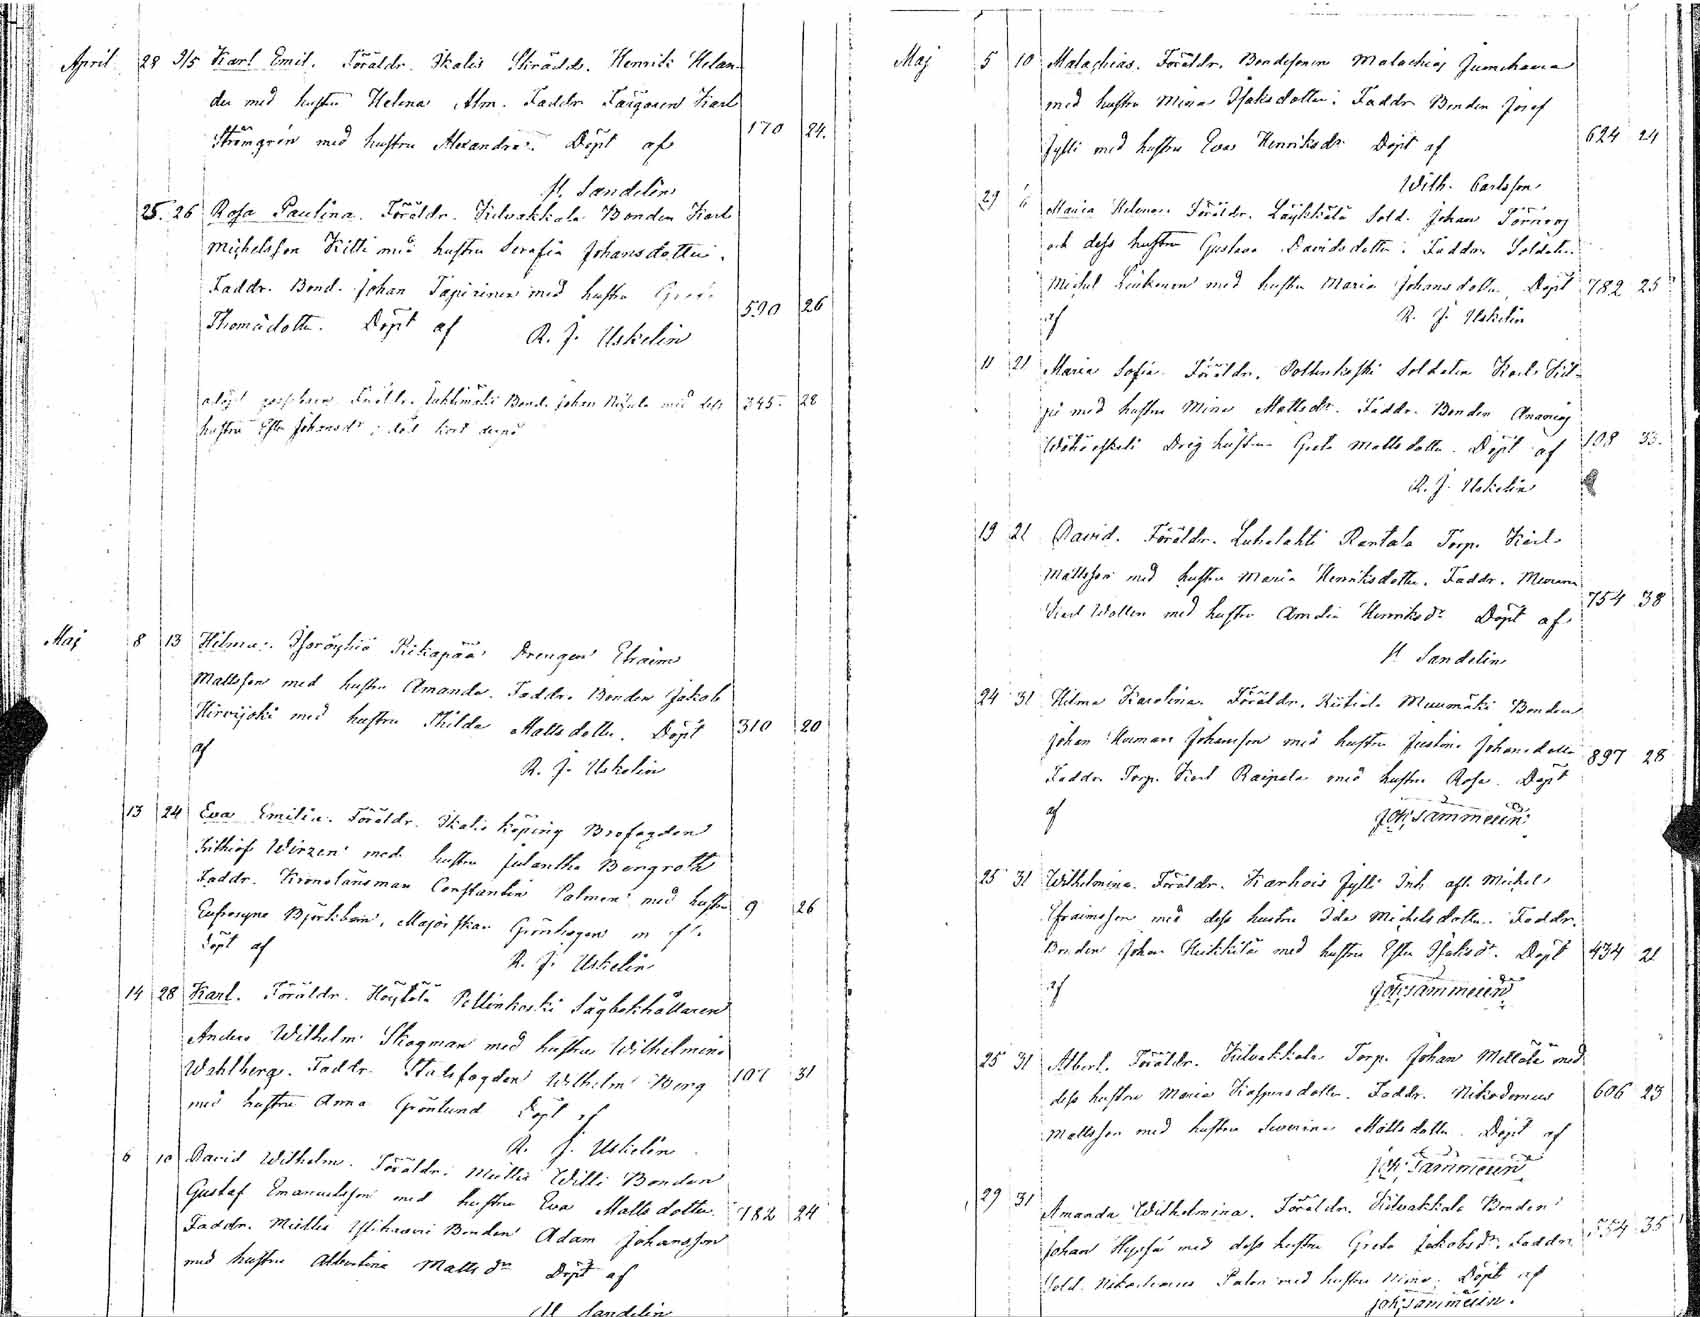 April 28 9/5 Karl Emil. Föräldr. Ikalis Skrädd. Henrik Helan-
der med hustru Helena Alm. Faddr. Färgaren Karl
Strömgrén med hustru Alexandra. Döpt af 170 24.
Sandelin
25. 26 Rosa Paulina. Föräldr. Kilvakkala Bonden Karl
Michelsson Kitti med hustru Serafia Johansdotter.
Faddr. Bond. Johan Tapirinen med hustru
Thomädotter. Döpt af 590 26
R. J. Uskelin
Bond. Johan med dess 345 28
hustru Johansdr
Maj 8 13 Hilma. Kikapää Drengen Efraim
Mattsson med hustru Amanda. Faddr. Bonden Jakob
Hirvijoki med hustru Thilda Mattsdotter. Döpt 310 20
af
R. J. Uskelin
13 24 Eva Emilia. Föräldr. Ikalis köping Brofogden
Wirzen med hustru Bergroth
Faddr. Kronolänsman Constantin Palmén med hustru 9 26
Eufrosyne Björkbom, Majorskan Grönhagen
Döpt af
R. J. Uskelin
14 28 Karl. Föräldr. Höytölä Pettinkoski Sågbokhållaren
Anders Wilhelm Skogman med hustru Wilhelmina
Wahlberg. Faddr. Wilhelm Berg 107 31
med hustru Anna Grönlund Döpt af
R. J. Uskelin
6 10 David Wilhelm. Föräldr. Miettis Willi Bonden
Gustaf Emanuelsson med hustru Eva Mattsdotter. 782 24
Faddr. Miettis Bonden Adam Johansson
med hustru Albertina Matts dr Döpt af
Sandelin
Maj 5 10 Malachias. Föräldr. Bondesonen Malachias
med hustru Mina Isaksdotter. Faddr. Bonden Josef
Jylli med hustru Eva Henriksdr Döpt af 624 24
Wilh. Carlsson
29 Maria Helena. Föräldr. Läykkälä Sold. Johan Törnroos
och dess hustru Gustava Davidsdotter. Faddr. Soldaten
Michel med hustru Maria Johansdotter Döpt 782 25
af R. J. Uskelin
11 21 Maria Sofia. Föräldr. Poltinkoski Soldaten Karl
med hustru Mina Mattsdr. Faddr. Bonden Ananias
hustru Greta Mattsdotter. Döpt af 108 33.
R. J. Uskelin
19 21 David. Föräldr. Luhalahti Rantala Torp. Karl
Mattsson med hustru Maria Henriksdotter. Faddr.
Karl Wallen med hustru Amalia Henriksdr Döpt af 754 38
Sandelin
24 31 Hilma Karolina. Föräldr. Riitiala Muumäki Bonden
Johan Herman Johansson med hustru Justina Johansdotter 897 28
Faddr. Torp. Karl Raipala med hustru Rosa. Döpt
af Joh. Tammelin
25 31 Wilhelmina. Föräldr. Karhois Jylli Inh. Michel
Efraimsson med dess hustru Ida Michelsdotter. Faddr.
Bonden Johan med hustru Ester Isaksdr. Döpt 434 21
af Joh. Tammelin
25 31 Albert. Föräldr. Kilvakkala Torp. Johan Mettälä med
dess hustru Maria Kaspersdotter. Faddr. Nikodemus 606 23
Mattsson med hustru Severina Mattsdotter. Döpt af
Joh. Tammelin
29 31 Amanda Wilhelmina. Föräldr. Kilvakkala Bonden
Johan med dess hustru Greta Jakobsdr. Faddr. 554 35
Sold. Nikodemus Palen med hustru Mina. Döpt af
Joh. Tammelin.